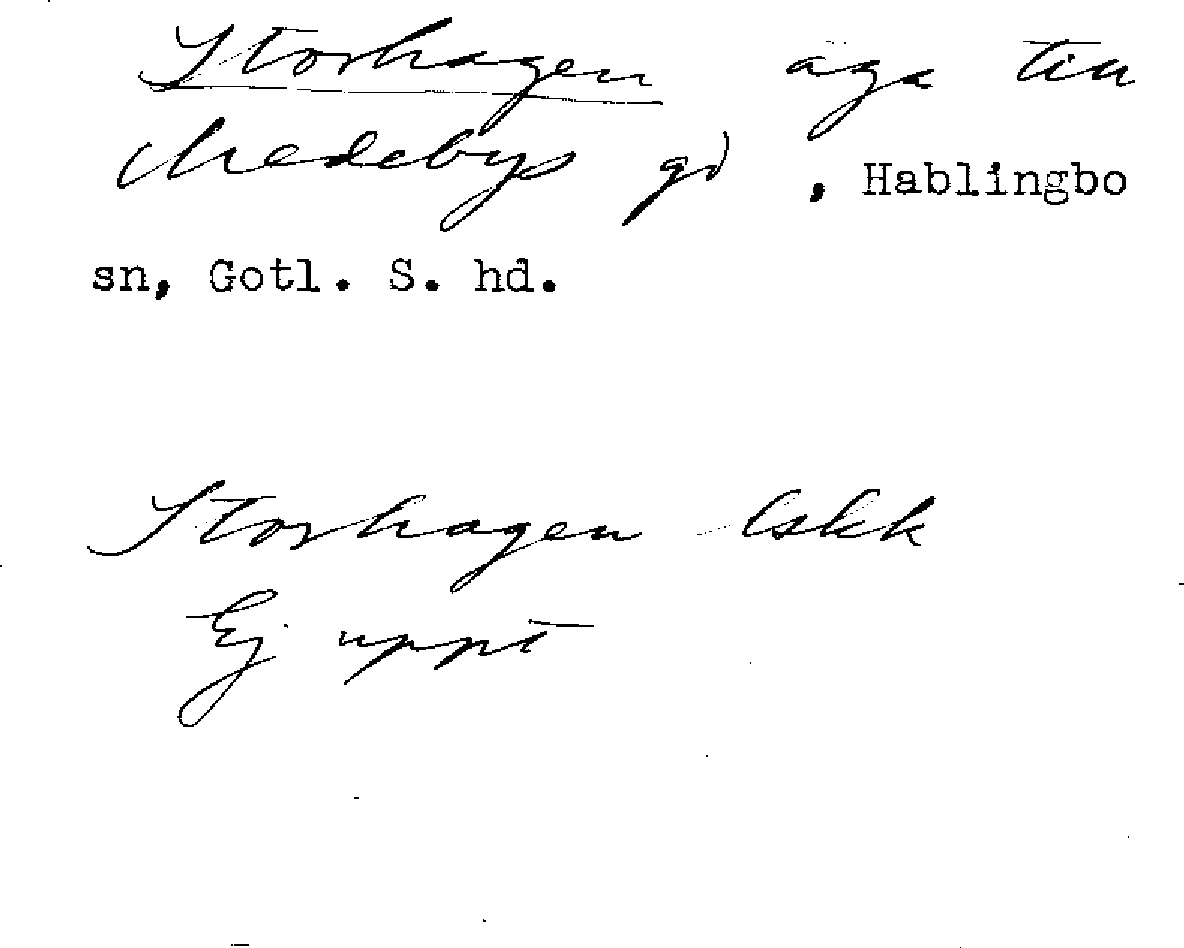 Storhagen äga till
Medebys gd, Hablingbo
sn, Gotl. S. hd.
Storhagen lskk
Ej uppt